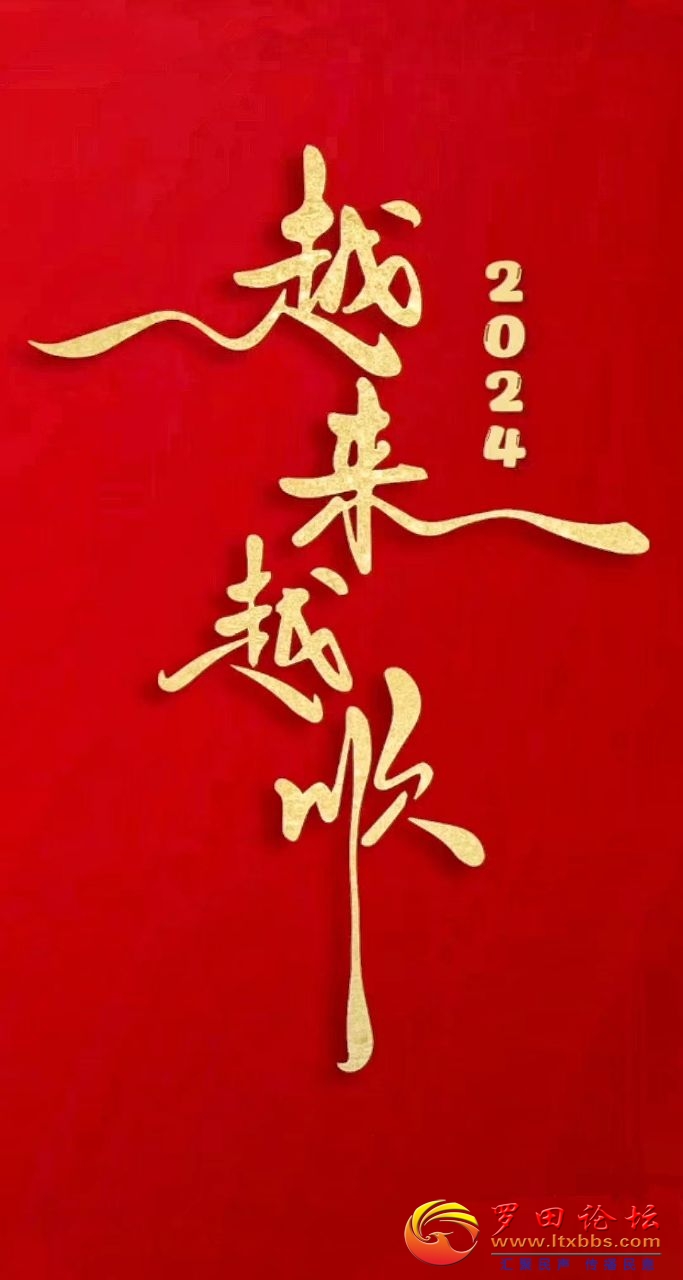 越来越顺
2024
罗田论坛
www.ltxbbs.com